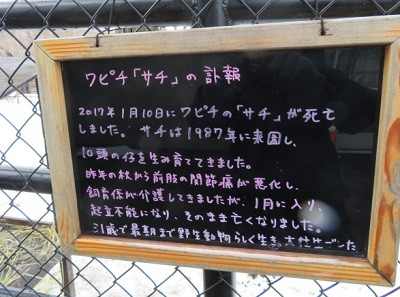 ワピチ「サチ」の訃報
2017年1月10日にワピチの「サチ」が死亡
しました。サチは1987年に来園し、
10頭の仔を生み育ててきました。
昨年の秋から前肢の関節痛が悪化し、
飼育係が介護してきましたが、1月に入り、
起立不能になり、そのまま亡くなりました。
31歳で最期まで野生動物らしく生き、大往生でした